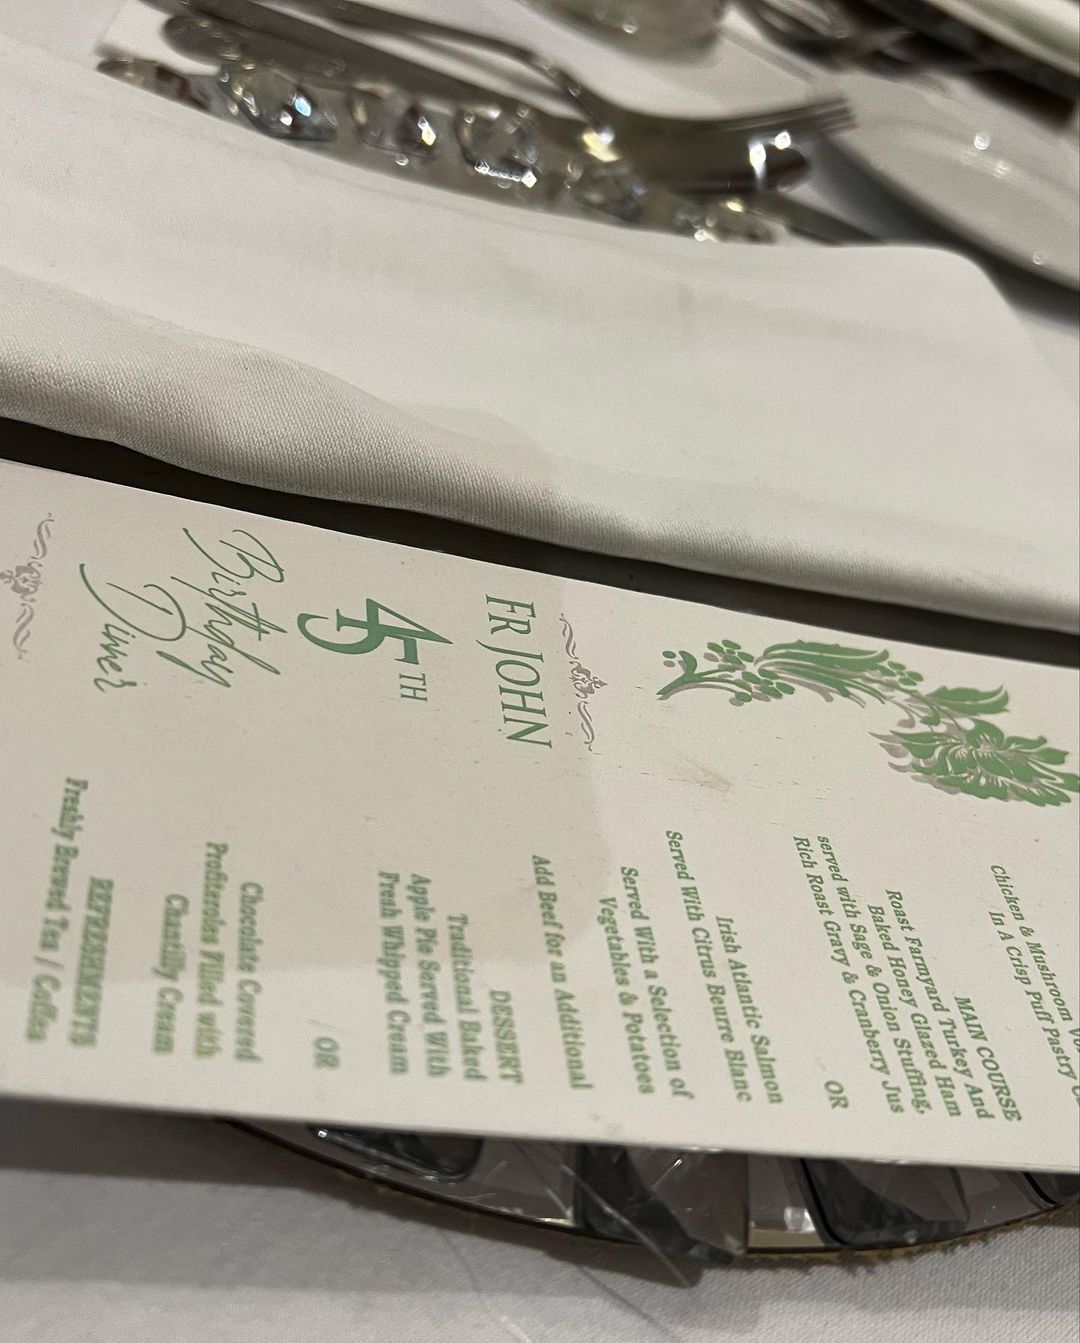 FR JOHN
45TH
Birthday
Dinner
Chicken & Mushroom
In A Crisp Puff Pastry
MAIN COURSE
Roast Farmyard Turkey And
Baked Honey Glazed Ham
served with Sage & Onion Stuffing,
Rich Roast Gravy & Cranberry Jus
OR
Irish Atlantic Salmon
Served With Citrus Beurre Blanc
Served With a Selection of
Vegetables & Potatoes
Add Beef for an Additional
DESSERT
Traditional Baked
Apple Pie Served With
Fresh Whipped Cream
OR
Chocolate Covered
Profiteroles Filled with
Chantilly Cream
REFRESHMENTS
Freshly Brewed Tea / Coffee